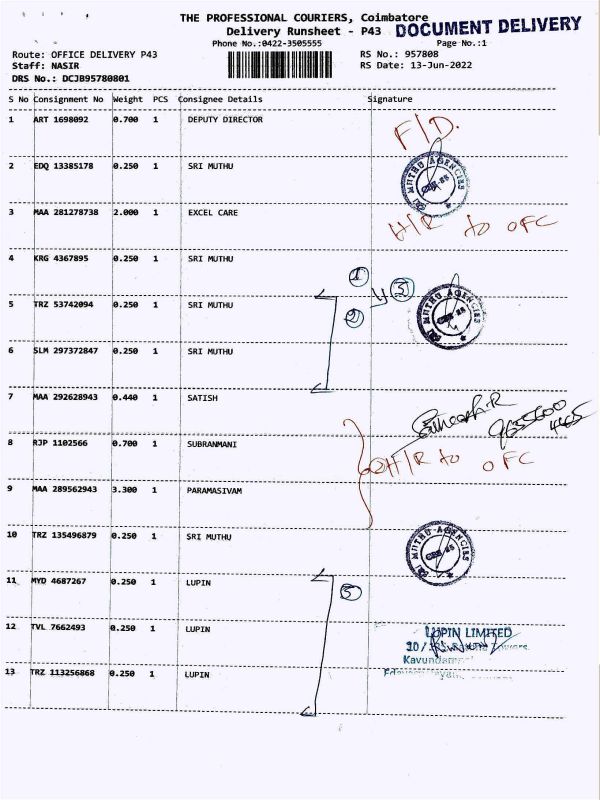 THE PROFESSIONAL COURIERS, Coimbatore
Delivery Runsheet - P43
DOCUMENT DELIVERY
Phone No.:0422-3505555
Page No.:1
Route: OFFICE DELIVERY P43
RS No.: 957808
Staff: NASIR
RS Date: 13-Jun-2022
DRS No.: DCJB95780801
S No Consignment No Weight PCS Consignee Details Signature
1 ART 1698092 0.700 1 DEPUTY DIRECTOR
F/D.
2 EDQ 13385178 0.250 1 SRI MUTHU
SRI MUTHU AGENCIES
3 MAA 281278738 2.000 1 EXCEL CARE
H/R to OFC
4 KRG 4367895 0.250 1 SRI MUTHU
1
3
5 TRZ 53742094 0.250 1 SRI MUTHU
2
SRI MUTHU AGENCIES
6 SLM 297372847 0.250 1 SRI MUTHU
7 MAA 292628943 0.440 1 SATISH
8 RJP 1102566 0.700 1 SUBRANMANI
H/R to OFC
9 MAA 289562943 3.300 1 PARAMASIVAM
10 TRZ 135496879 0.250 1 SRI MUTHU
SRI MUTHU AGENCIES
11 MYD 4687267 0.250 1 LUPIN
12 TVL 7662493 0.250 1 LUPIN
LUPIN LIMITED
13 TRZ 113256868 0.250 1 LUPIN